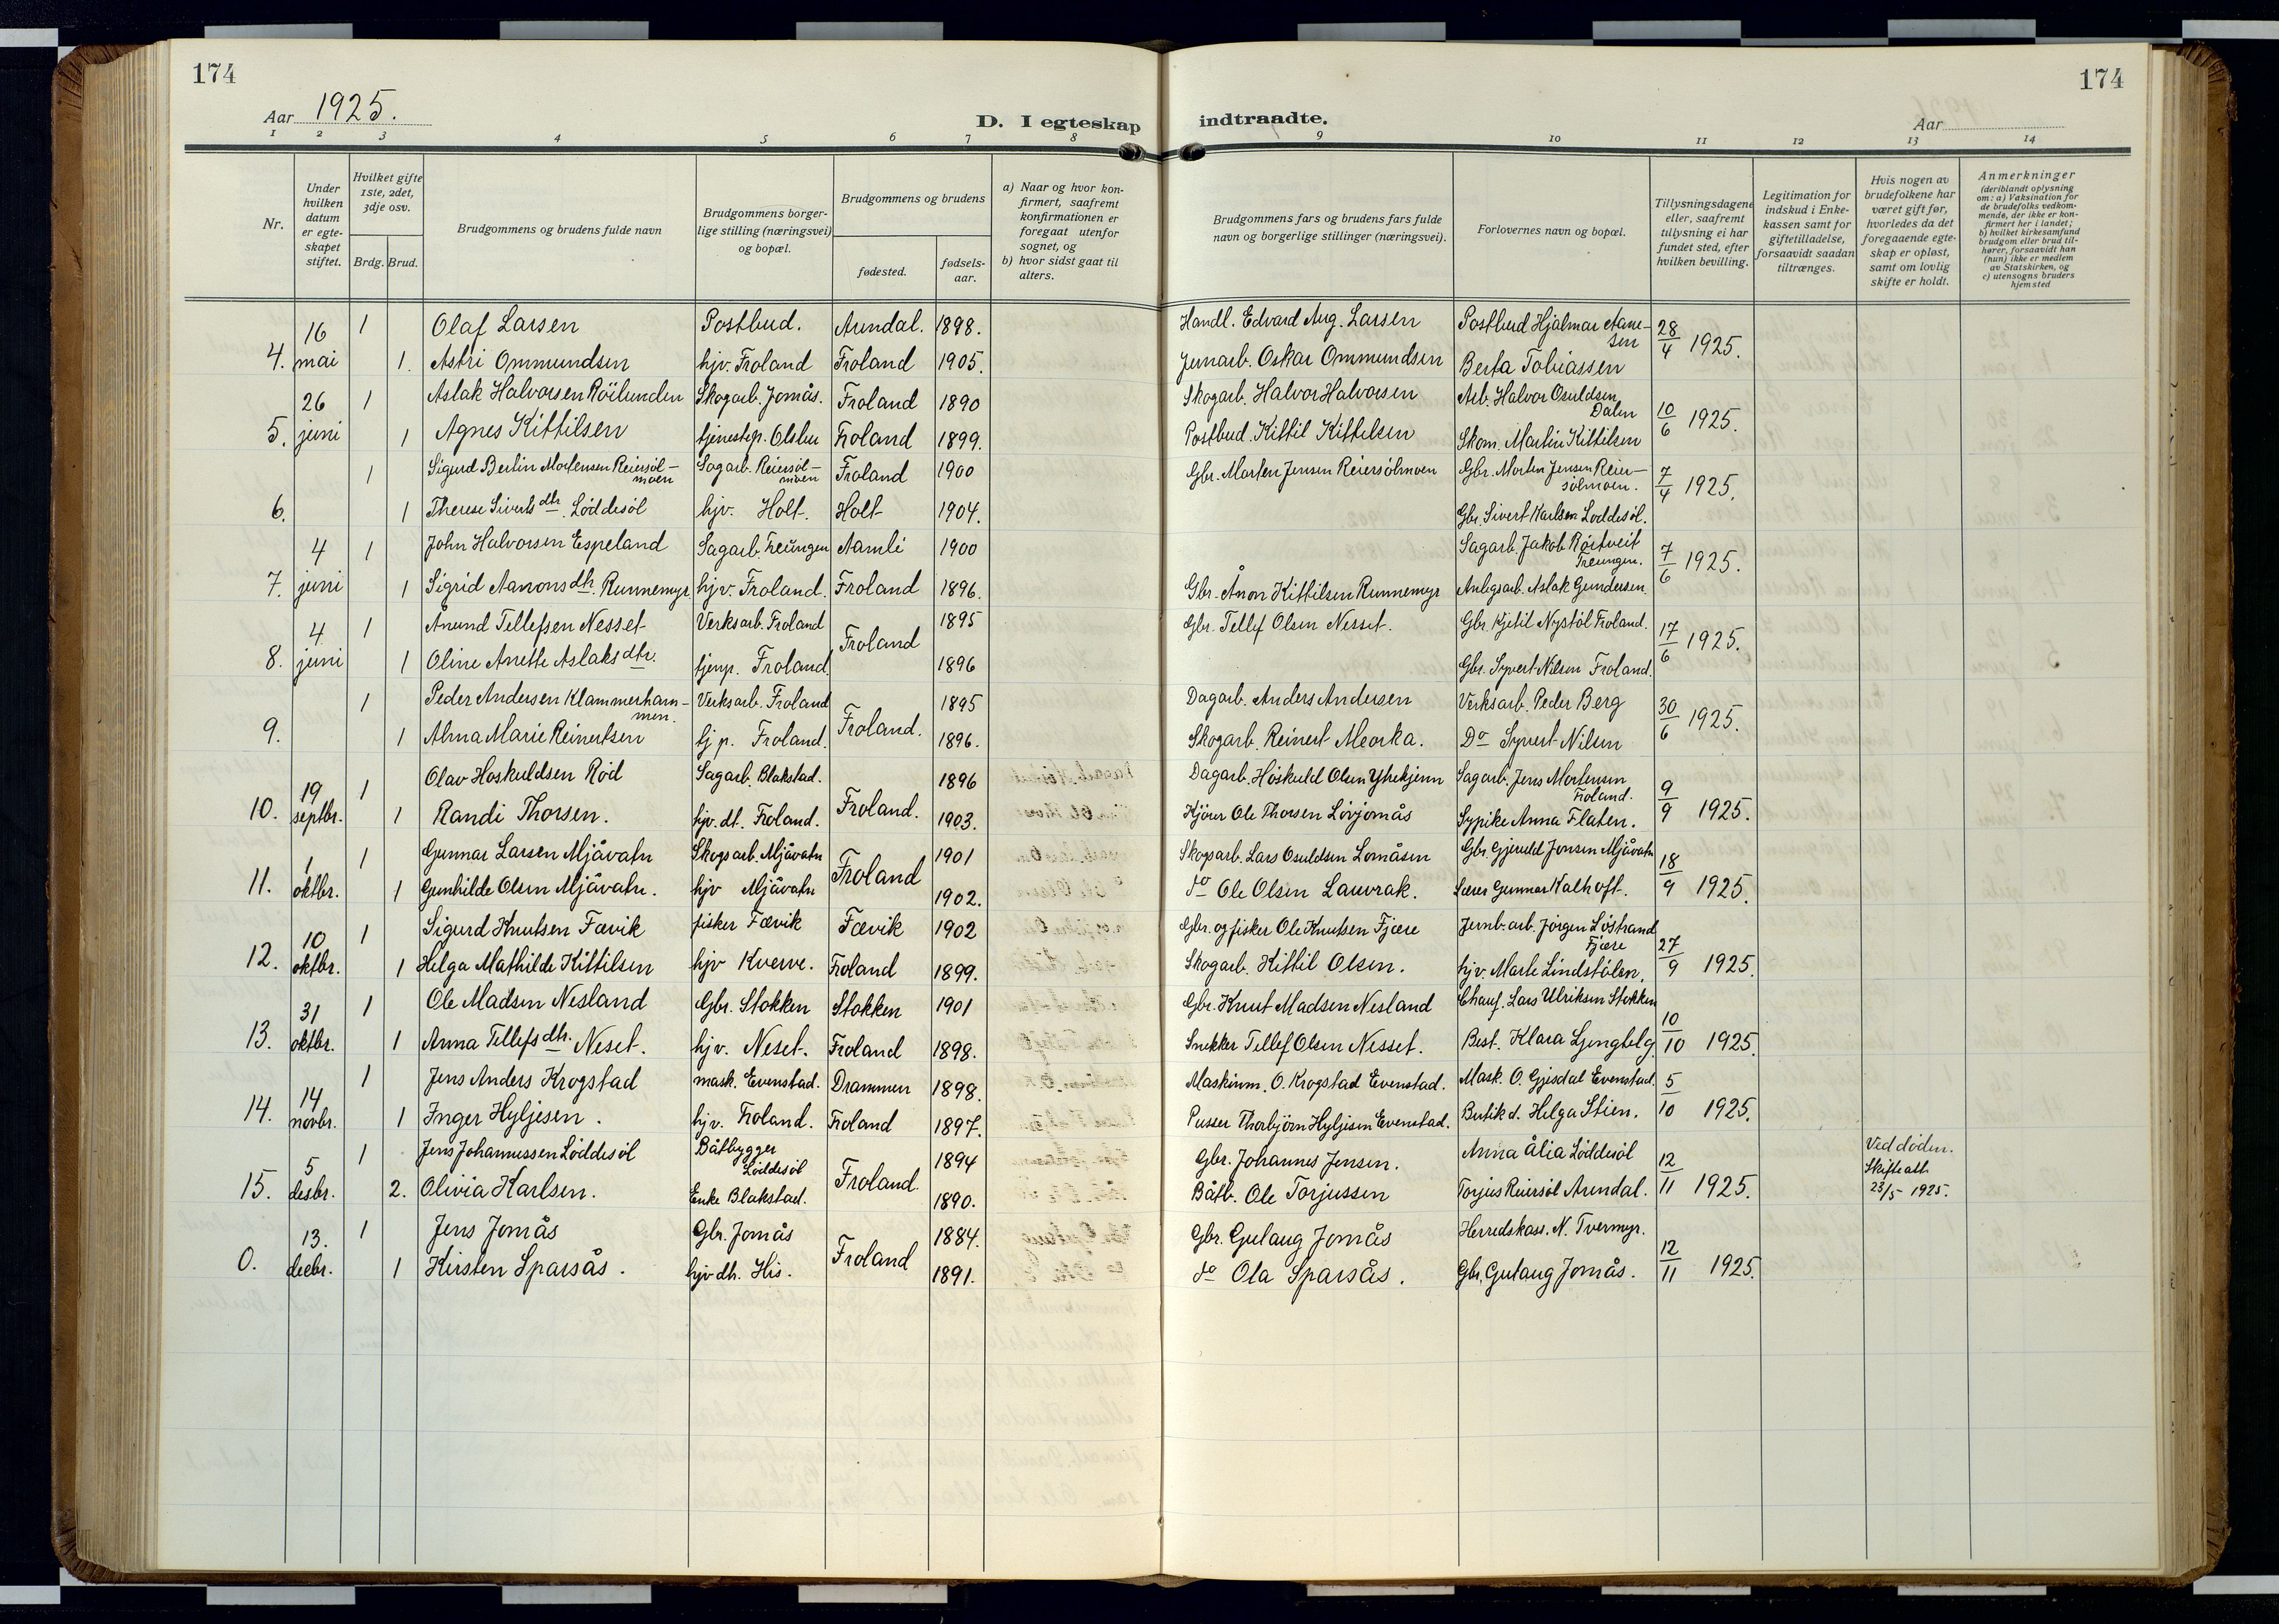 174
174
Aar 1925.
D. I egteskap indtraadte.
Aar
1 2 3 4 5 6 7 8 9 10 11 12 13 14
Nr.
Under hvilken datum er egteskapet stiftet.
Hvilket gifte 1ste, 2det, 3dje osv.
Brdg. Brud.
Brudgommens og brudens fulde navn
Brudgommens borgerlige stilling (næringsvei) og bopæl.
Brudgommens og brudens
fødested.
fødselsaar.
a) Naar og hvor konfirmert, saafremt konfirmationen er foregaat utenfor sognet, og
b) hvor sidst gaat til alters.
Brudgommens fars og brudens fars fulde navn og borgerlige stillinger (næringsvei).
Forlovernes navn og bopæl.
Tillysningsdagene eller, saafremt tillysning ei har fundet sted, efter hvilken bevilling.
Legitimation for indskud i Enkekassen samt for giftetilladelse, forsaavidt saadan tiltrænges.
Hvis nogen av brudefolkene har været gift før, hvorledes da det foregaaende egteskap er opløst, samt om lovlig skifte er holdt.
Anmerkninger (deriblandt oplysning om: a) Vaksination for de brudefolks vedkommende, der ikke er konfirmert her i landet; b) hvilket kirkesamfund brudgom eller brud tilhører, forsaavidt han (hun) ikke er medlem av Statskirken, og c) utensogns bruders hjemsted
16 1 Olaf Larsen Postbud. Arendal. 1898. Handl. Edvard Aug. Larsen Postbud Hjalmar Aanesen 28/4 1925.
4. mai 1. Astri Ommundsen hjv. Froland Froland 1905. Jernarb. Oskar Ommundsen Berta Tobiassen
26 1 Aslak Halvorsen Röilunden Skogarb. Jomås. Froland 1890 Skogarb. Halvor Halvorsen Arb. Halvor Osuldsen Dalen 10/6 1925.
5. juni 1 Agnes Kittilsen tjenestep. Olsbu Froland 1899. Postbud. Kittil Kittilsen Skom. Martin Kittilsen
1 Sigurd Bertin Mortensen Reiersölmoen Sagarb. Reiersölmoen Froland 1900 Gbr. Morten Jensen Reiersölmoen Gbr. Morten Jensen Reiersölmoen. 7/4 1925.
6. 1 Therese Siverts dtr. Löddesöl hjv. Holt. Holt 1904. Gbr. Sivert Karlsen Loddesöl.
4 1 John Halvorsen Espeland Sagarb. Treungen Aamli 1900 Sagarb. Jakob Röstveit Treungen. 7/6 1925.
7. juni 1 Sigrid Aanonsdtr. Runnemyr hjv. Froland. Froland 1896. Gbr. Ånon Kittilsen Runnemyr Anlegsarb. Aslak Gundersen
4 1 Ånund Tellefsen Nesset Verksarb. Froland Froland 1895 Gbr. Tellef Olsen Nesset. Gbr. Kjetil Nystöl Froland. 17/6 1925.
8. juni 1 Oline Anette Aslaksdtr. tjenp. Froland. 1896 Gbr. Syvert Nilsen Froland.
1 Peder Andersen Klammerhammen. Verksarb. Froland Froland. 1895 Dagarb. Anders Andersen Verksarb. Peder Berg 30/6 1925.
9. 1 Alma Marie Reinertsen tj p. Froland. 1896. Skogarb. Reinert Meorka. Do Syvert Nilsen
19 1 Olav Hoskuldsen Röd Sagarb. Blakstad. Froland. 1896 Dagarb. Höskuld Olsen Ytrekjenn Sagarb. Jens Mortensen Froland. 9/9 1925.
10. septbr. 1 Randi Thorsen. hjv. dt. Froland. 1903. Kjörer Ole Thorsen Lövjomås Sypike Anna Flaten.
1 1 Gunnar Larsen Mjåvatn Skogsarb. Mjåvatn Froland 1901 Skogsarb. Lars Osuldsen Lomåsen Gbr. Gjeruld Jonsen Mjåvatn 18/9 1925.
11. oktbr. 1 Gunhilde Olsen Mjåvatn. hjv Mjåvatn 1902. do Ole Olsen Lauvrak. Lærer Gunnar Kalhoft.
10 1 Sigurd Knutsen Fævik fisker Fævik Fævik 1902 Gbr. og fisker Ole Knutsen Fjære Jernb. arb. Jörgen Löstrand Fjære 27/9 1925.
12. oktbr. 1 Helga Mathilde Kittilsen hjv Kverve. Froland 1899. Skogarb. Kittil Olsen. hjv. Marte Lindstölen.
31 1 Ole Madsen Nesland Gbr. Stokken Stokken 1901 Gbr. Knut Madsen Nesland Chauf. Lars Ulriksen Stokken 10/10 1925.
13. oktbr. 1 Anna Tellefsdtr. Neset. hjv. Neset. Froland 1898. Snekker Tellef Olsen Nesset. Best. Klara Ljengtelg.
14 1 Jens Anders Krogstad mask. Evenstad. Drammen 1898. Maskinm. O. Krogstad Evenstad. Mask. O. Gjesdal Evenstad. 5/10 1925.
14. novbr. 1 Inger Hyljesen. hjv. Froland. Froland 1897. Pusser Thorbjörn Hyljesen Evenstad. Butikd. Helga Stien.
5 1 Jens Johannessen Löddesöl Båtbygger Löddesöl Froland. 1894 Gbr. Johannes Jensen. Anna Ålia Löddesöl 12/11 1925. Ved döden. Skifteatt. 23/5 1925.
15. desbr. 2. Olivia Karlsen. Enke Blakstad. 1890. Båtb. Ole Torjussen Torjus Reiersöl Arendal.
13. 1 Jens Jomås Gbr. Jomås Froland 1884. Gbr. Gulaug Jomås Herredskass. N. Tvermyr. 12/11 1925.
0. decbr. 1 Kirsten Sparsås. hjv dtr. His. 1891. do Ola Sparsås. Gbr. Gulaug Jomås.